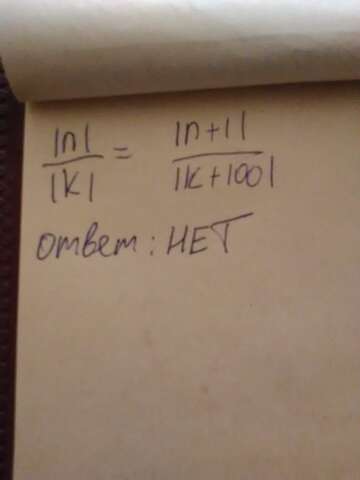 |n| / |k| = |n+1| / |k+100|
ответ: НЕТ